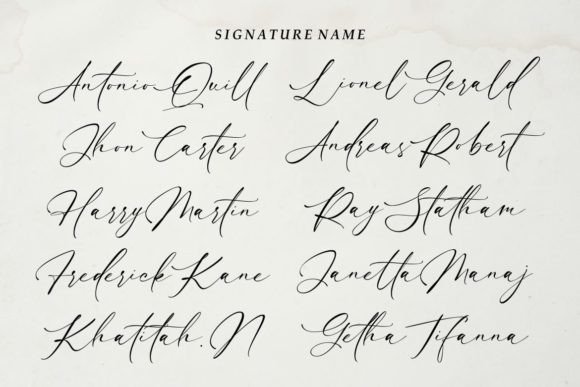 SIGNATURE NAME
Antonio Quill
Lionel Gerald
Jhon Carter
Andreas Robert
Harry Martin
Ray Statham
Frederick Kane
Janetta Manaj
Khatitah. N
Getha Tifanna